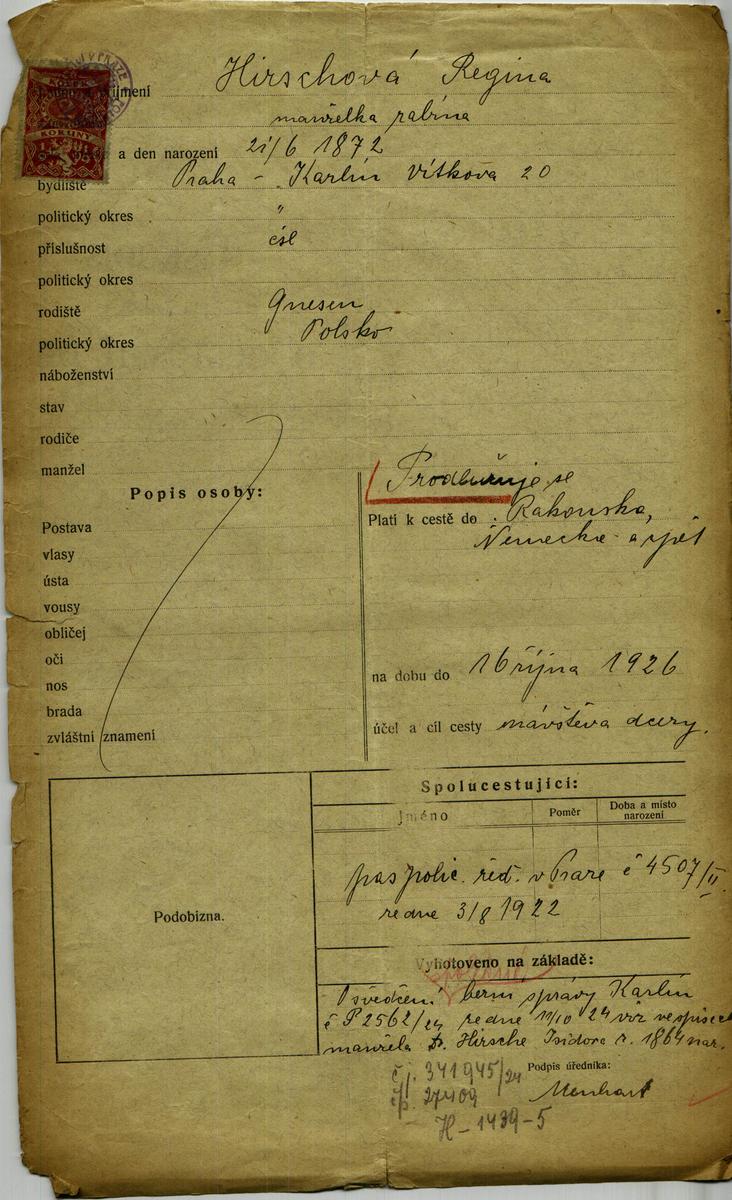 Hirschová Regina
příjmení
manželka rabína
KORUNY
a den narození 21/6 1872
bydliště Praha - Karlín Vítkova 20
politický okres "
příslušnost čsl
politický okres
rodiště Gnesen
politický okres Polsko
náboženství
stav
rodiče
manžel
Popis osoby:
Postava
vlasy
ústa
vousy
obličej
oči
nos
brada
zvláštní znamení
Prodlužuje se
Platí k cestě do Rakouska,
Německa a zpět
na dobu do 16 října 1926
účel a cíl cesty návštěva dcery.
Podobizna.
Spolucestující:
Jméno Poměr Doba a místo narození
pas polic. řed. v Praze č 4507/II
ze dne 3/8 1922
Vyhotoveno na základě:
Osvědčení berní správy Karlín
č P 2562/24 ze dne 11/10 24 viz ve spisech
manžela Dr. Hirsche Isidora r. 1864 nar.
Podpis úředníka:
č j. 341945/24
27409
H-1439-5